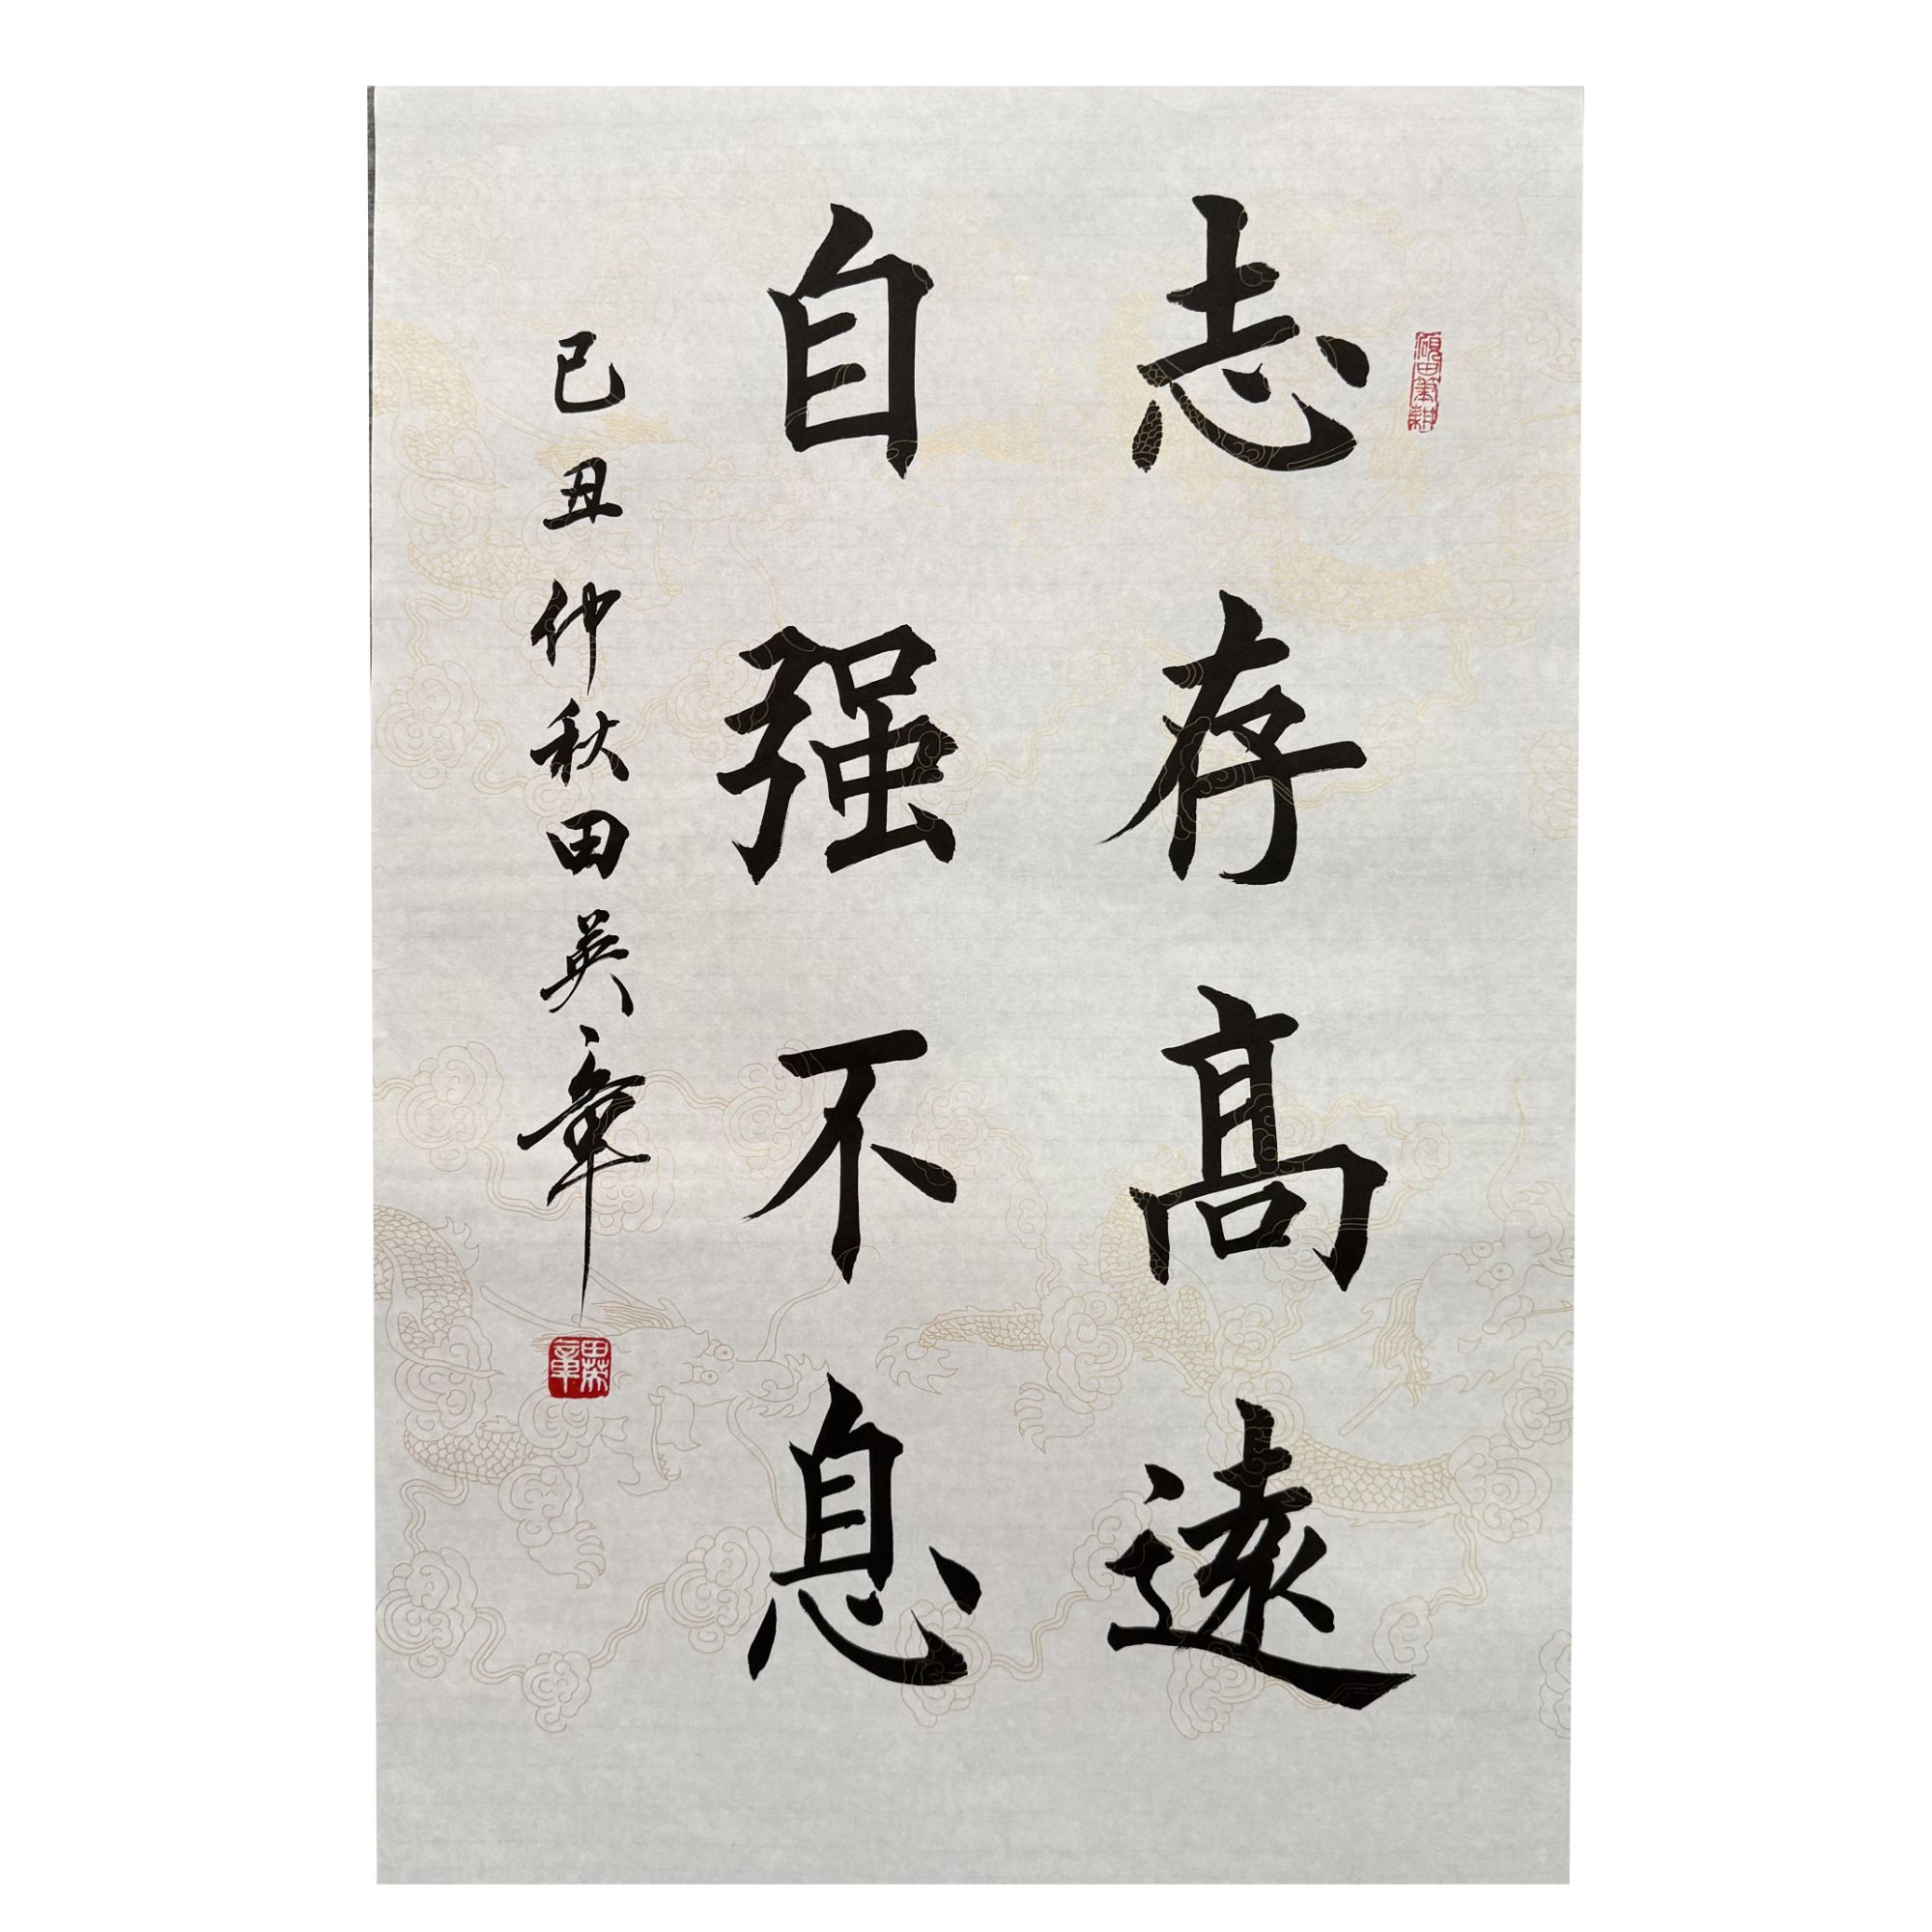 志存高遠
自强不息
己丑仲秋田英章
硯田筆耕
田英章